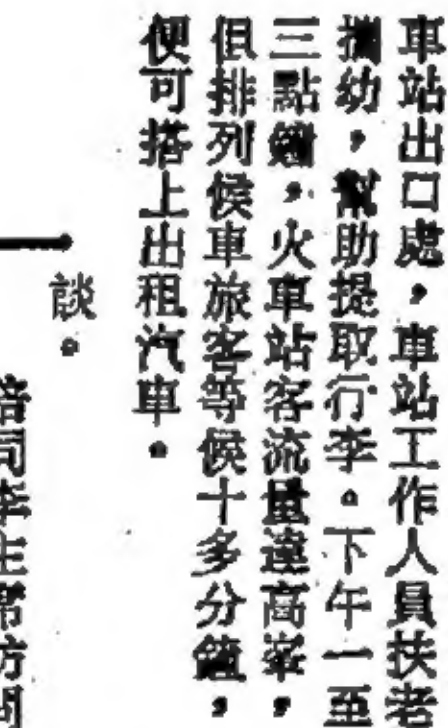 車站出口處，車站工作人員扶老
攜幼，幫助提取行李。下午一至
三點鐘，火車站客流量達高峯，
但排列候車旅客等候十多分鐘，
便可搭上出租汽車。
談。
陪同李主席訪問